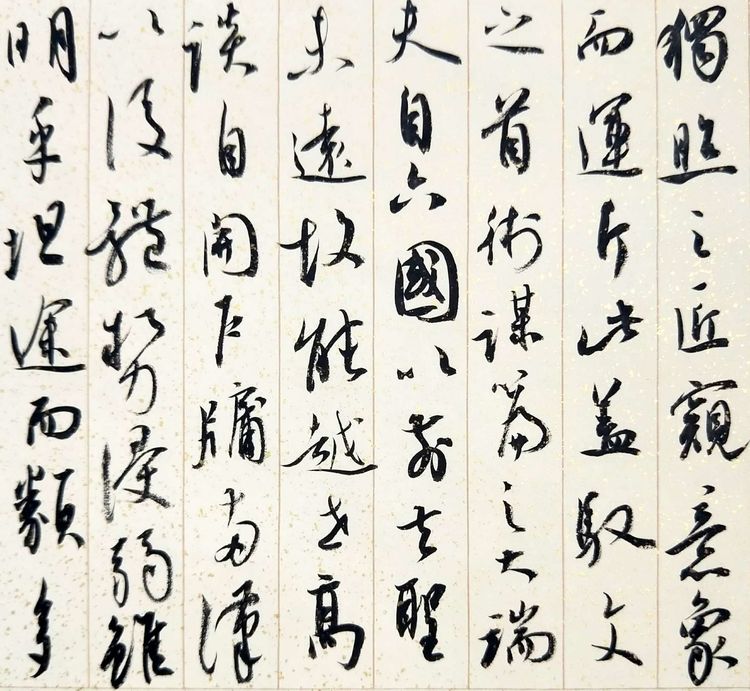 獨照之匠窺意象
而運斤此蓋馭文
之首術謀篇之大端
夫自六國以前去聖
未遠故能越世高
談自開戶牖兩漢
以後體勢浸弱雖
明乎坦途而類多